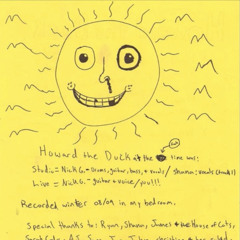 Howard the Duck at the time was:
Studio = Nick G. - Drums, guitar, bass, + vocals / shannon: vocals (track 1)
Live = Nick G. - guitar + voice/you!!!
Recorded winter 08/09 in my bedroom.
Special thanks to: Ryan, Shawn, James + the House of Cats,